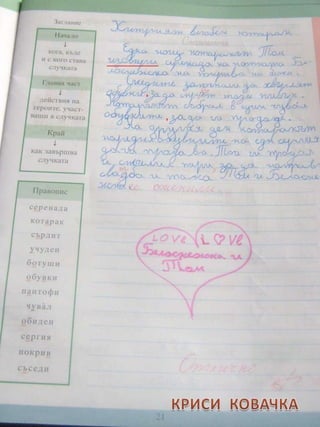 Заглавие
Начало
↓
кога, къде
и с кого става
случката
Главна част
↓
действия на
героите, участ-
ващи в случката
Край
↓
как завършва
случката
Правопис
серенада
котарак
сърдит
учуден
ботуши
обувки
пантофи
чувал
обиден
сергия
покрив
съседи
Хитрият влюбен котарак
Една нощ котаракът Том
серенада на котката Бе-
лоснежка на покрива на
Съседите започнаха да хвърлят
обувки, за да
Котаракът събрал в един чувал
обувките, за да ги продаде.
На другия ден котаракът
наредил обувките на една сергия
да ги продава. Том ги продал
и
сватба и така Том и Белосне-
жка се оженили.
LOVE LOVE
Белоснежка и
Том
Отличен
21
КРИСИ КОВАЧКА